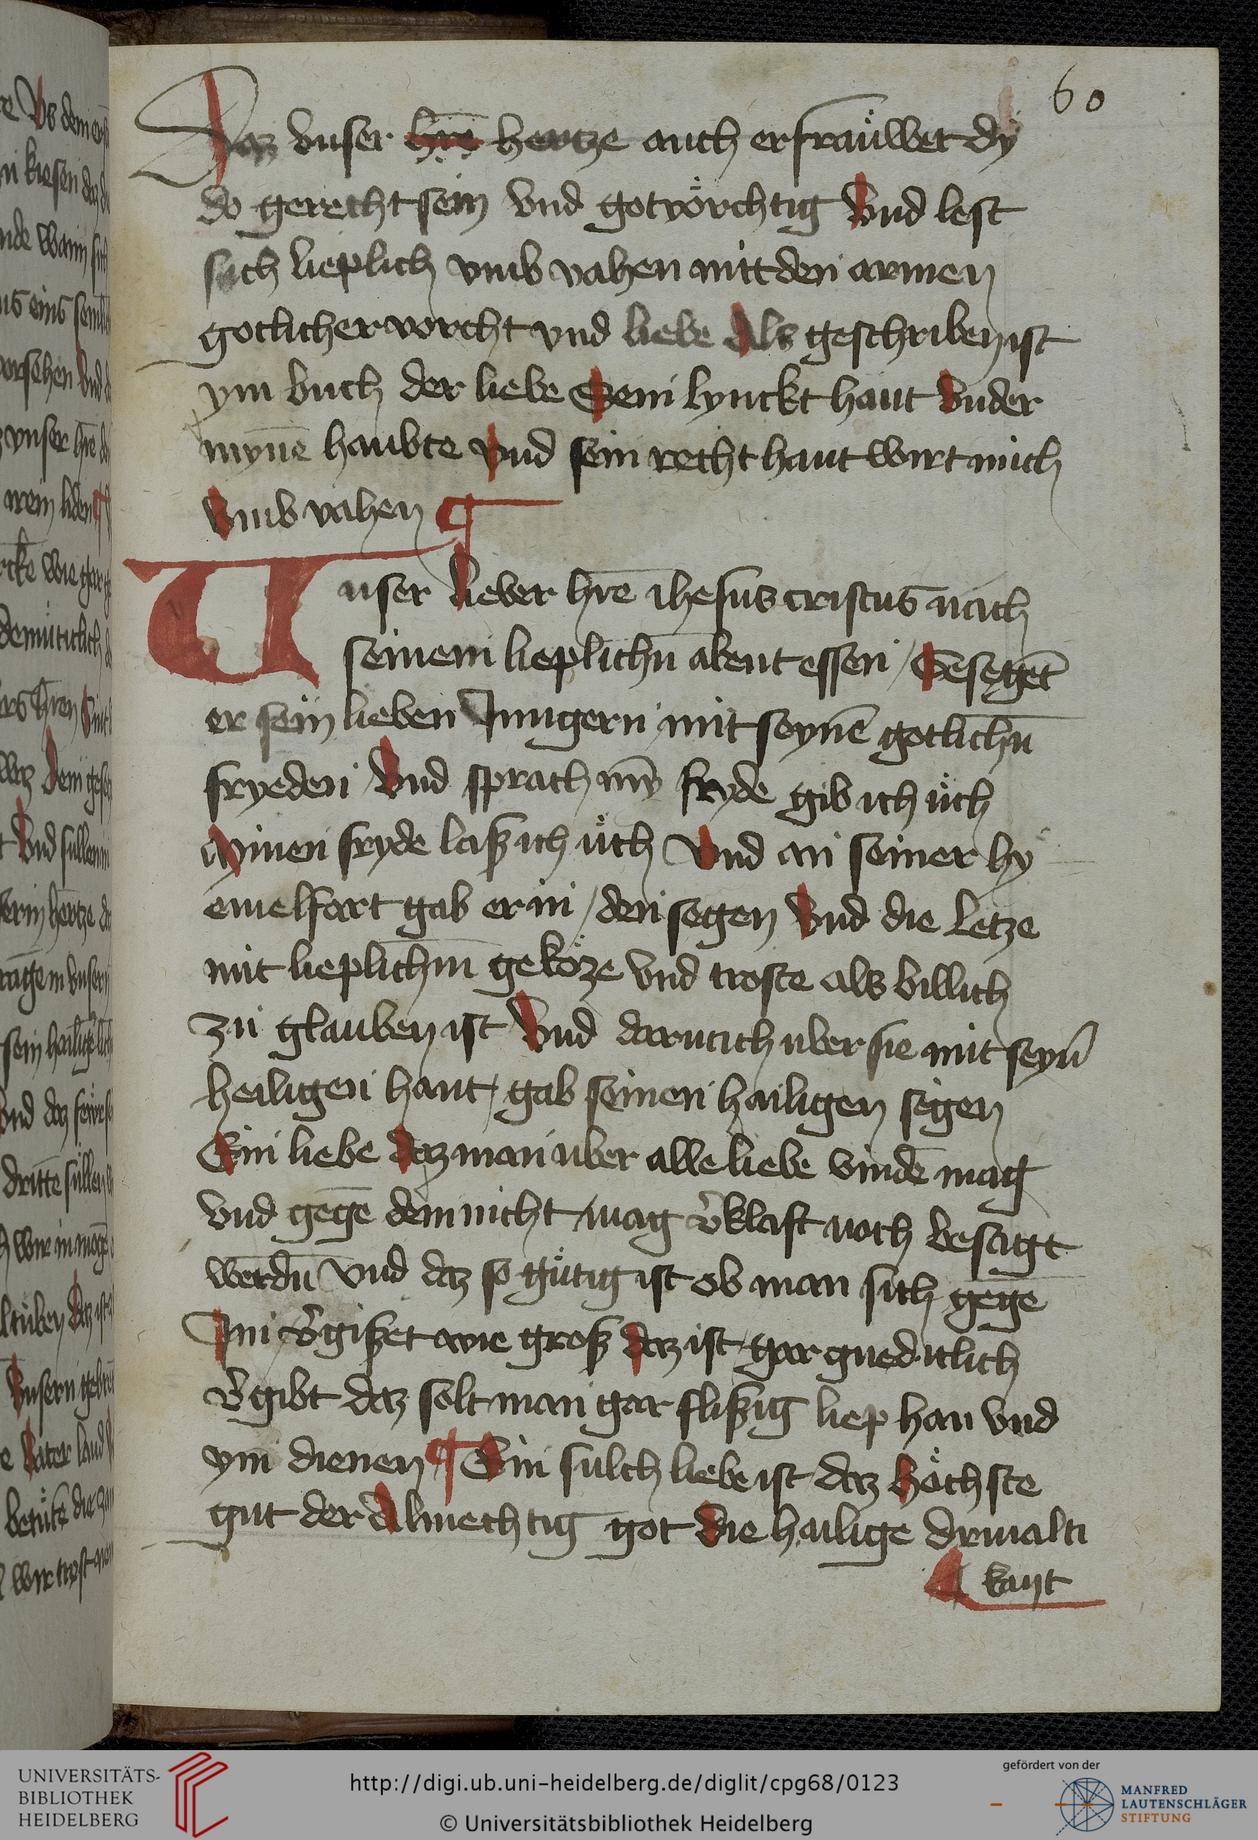 60
Daz vnser hre hertze auch erfraüwet dy
do gerecht sein vnd gotvörchtig Vnd lest
sich lieplich vmb vahen mit den armen
gotlicher vorcht vnd liebe Als geschriben ist
ym buch der liebe Sein lynckt hant Vnder
mynē haubte vnd sein recht hant wirt mich
Vmb vahen ¶
Vnser lieber hre ihesus cristus nach
seinem lieplichn abent essen / Gesegēt
er sein lieben Jungern mit seynē gotlichn
fryeden Vnd sprach myn fryde gib ich üch
Mynen fryde lasz ich üch Vnd an seiner hy
emelfart gab er in / den segen Vnd die Letze
mit lieplichm geköze vnd troste als billich
zu glauben ist Vnd darnach uber sie mit seyn
heiligen hant / gab seinen hailigen segen
Ein liebe daz man uber alle liebe vindē mag
vnd gegē dem nicht mag vklafft noch besagt
werdn vnd daz so gütig ist ob man sich gegē
Im vgiszet wie grosz daz ist gar gneditlich
vgibt daz solt man gar fliszig liep han vnd
ym dienen ¶ Ein sulch liebe ist daz höchste
gut der Almechtig got die hailige drivalti
kayt
UNIVERSITÄTS-
BIBLIOTHEK
HEIDELBERG
http://digi.ub.uni-heidelberg.de/diglit/cpg68/0123
© Universitätsbibliothek Heidelberg
gefördert von der
MANFRED
LAUTENSCHLÄGER
STIFTUNG